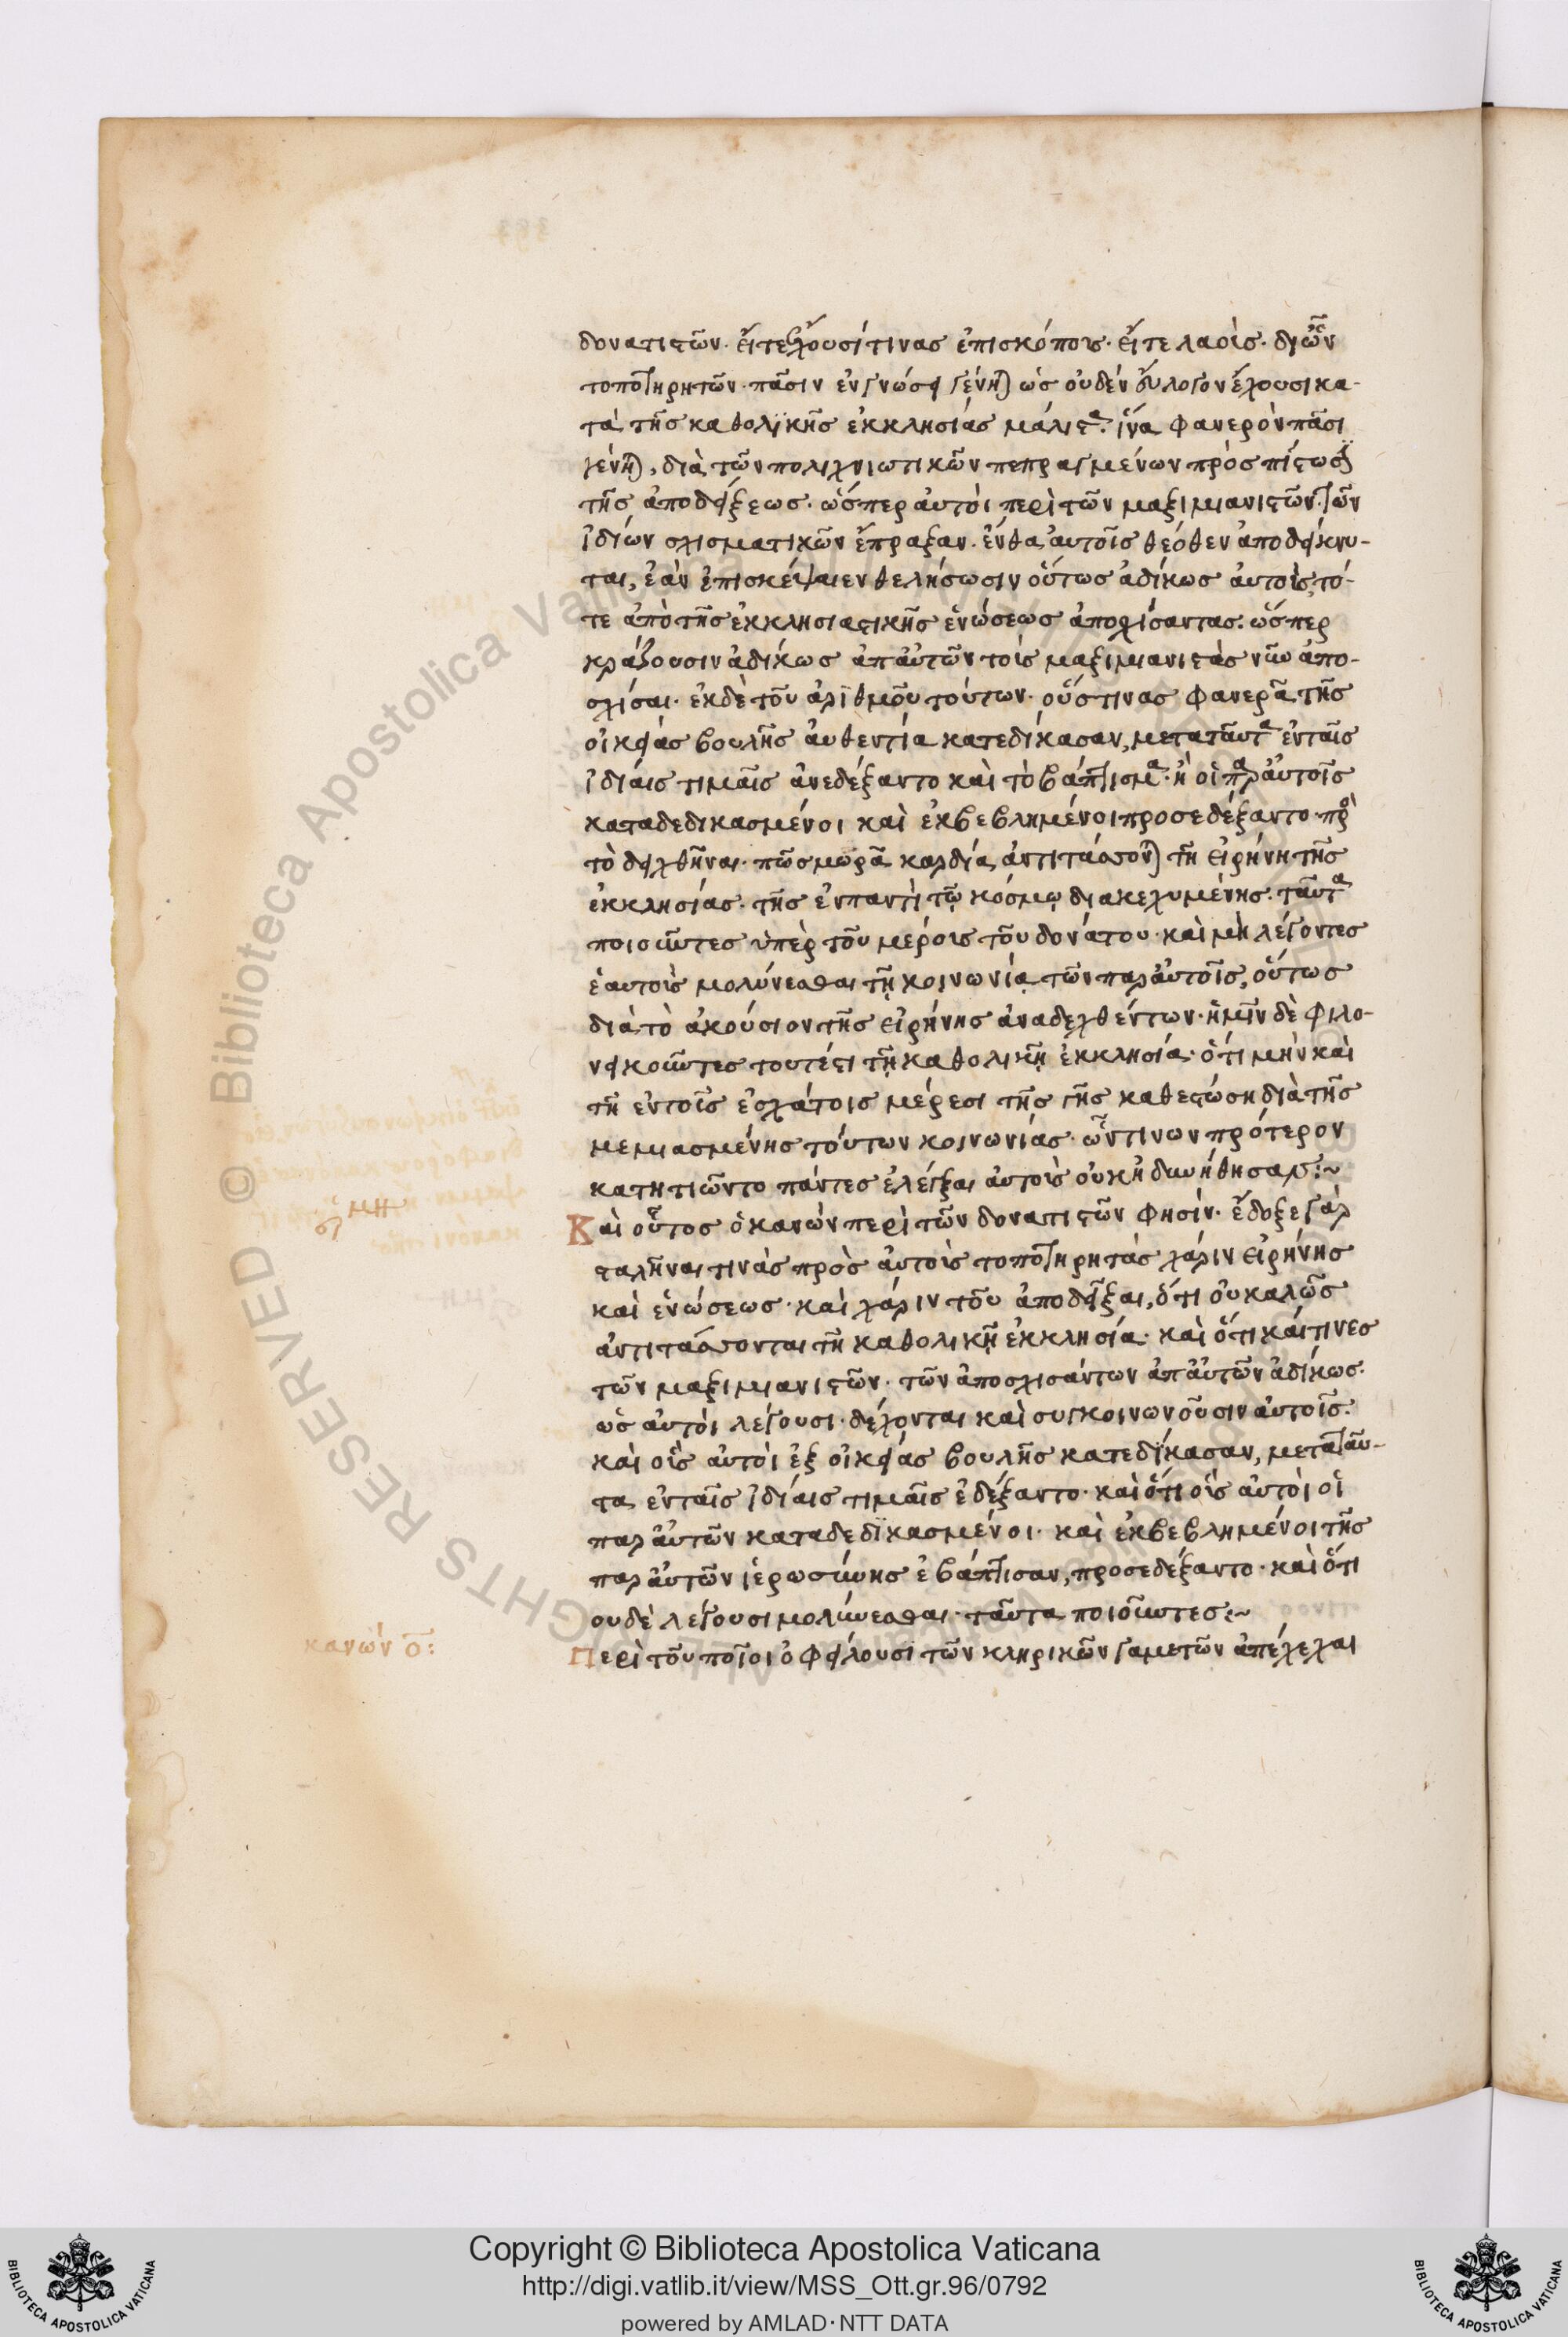 δονατιστῶν· εἴτε ἔχουσί τινας ἐπισκόπους· εἴτε λαούς· δι' ὧν
τοποτηρητῶν· πᾶσιν ἐν γνώσει γένηται ὡς οὐδὲν εὔλογον ἔχουσι κα-
τὰ τῆς καθολικῆς ἐκκλησίας μάλιστα· ἵνα φανερὸν πᾶσι
γένηται, διὰ τῶν πολιχνιωτικῶν πεπραγμένων πρὸς πίστωσιν
τῆς ἀποδείξεως· ὥσπερ αὐτοὶ περὶ τῶν μαξιμιανιστῶν τῶν
ἰδίων σχισματικῶν ἔπραξαν· ἔνθα αὐτοῖς θεόθεν ἀποδείκνυ-
ται, ἐὰν ἐπισκέψαιεν θελήσωσιν οὕτως ἀδίκως αὐτοὺς τό-
τε ἀπὸ τῆς ἐκκλησιαστικῆς ἑνώσεως ἀποσχίσαντας· ὥσπερ
κράζουσιν ἀδίκως ἀπ' αὐτῶν τοὺς μαξιμιανιστὰς νῦν ἀπο-
σχίσαι· ἐκ δὲ τοῦ ἀριθμοῦ τούτων· οὕστινας φανερᾶ τῆς
οἰκείας βουλῆς αὐθεντία κατεδίκασαν, μετὰ ταῦτα ἐν ταῖς
ἰδίαις τιμαῖς ἀνεδέξαντο καὶ τὸ βάπτισμα· ἢ οἱ παρ' αὐτοῖς
καταδεδικασμένοι καὶ ἐκβεβλημένοι προσεδέξαντο πρὸς
τὸ δειχθῆναι· πῶς μωρᾶ καρδία ἀντιτάσσονται τῆ εἰρήνη τῆς
ἐκκλησίας· τῆς ἐν παντὶ τῷ κόσμῳ διακεχυμένης· ταῦτα
ποιοῦντες ὑπὲρ τοῦ μέρους τοῦ δονάτου· καὶ μὴ λέγοντες
ἑαυτοὺς μολύνεσθαι τῇ κοινωνίᾳ τῶν παρ' αὐτοῖς, οὕτως
διὰ τὸ ἀκούσιον τῆς εἰρήνης ἀναδεχθέντων· ἡμῖν δὲ φιλο-
νεικοῦντες τουτέστι τῇ καθολικῇ ἐκκλησία· ὅτι μὴν καὶ
τῆ ἐν τοῖς ἐσχάτοις μέρεσι τῆς γῆς καθεστώση διὰ τῆς
μεμιασμένης τούτων κοινωνίας· ὧντινων πρότερον
κατητιῶντο πάντες ἐλέγξαι αὐτοὺς οὐκ ἠδυνήθησαν:~
Καὶ οὗτος ὁ κανὼν περὶ τῶν δονατιστῶν φησίν· ἔδοξε γὰρ
σταλῆναι τινὰς πρὸς αὐτοὺς τοποτηρητὰς χάριν εἰρήνης
καὶ ἑνώσεως· καὶ χάριν τοῦ ἀποδεῖξαι, ὅτι οὐ καλῶς
ἀντιτάσσονται τῆ καθολικῇ ἐκκλησία· καὶ ὅτι καί τινες
τῶν μαξιμιανιστῶν· τῶν ἀποσχισάντων ἀπ' αὐτῶν ἀδίκως·
ὡς αὐτοὶ λέγουσι· δέχονται καὶ συγκοινωνοῦσιν αὐτοῖς·
καὶ οὓς αὐτοὶ ἐξ οἰκείας βουλῆς κατεδίκασαν, μετὰ ταῦ-
τα ἐν ταῖς ἰδίαις τιμαῖς ἐδέξαντο· καὶ ὅτι οὓς αὐτοὶ οἱ
παρ' αὐτῶν καταδεδικασμένοι· καὶ ἐκβεβλημένοι τῆς
παρ' αὐτῶν ἱερωσύνης ἐβάπτισαν, προσεδέξαντο· καὶ ὅτι
οὐδὲ λέγουσι μολύνεσθαι· ταῦτα ποιοῦντες:~
κανὼν ο:
Περὶ τοῦ ποῖοι ὀφείλουσι τῶν κληρικῶν γαμετῶν ἀπέχεσθαι
Copyright © Biblioteca Apostolica Vaticana
http://digi.vatlib.it/view/MSS_Ott.gr.96/0792
powered by AMLAD·NTT DATA